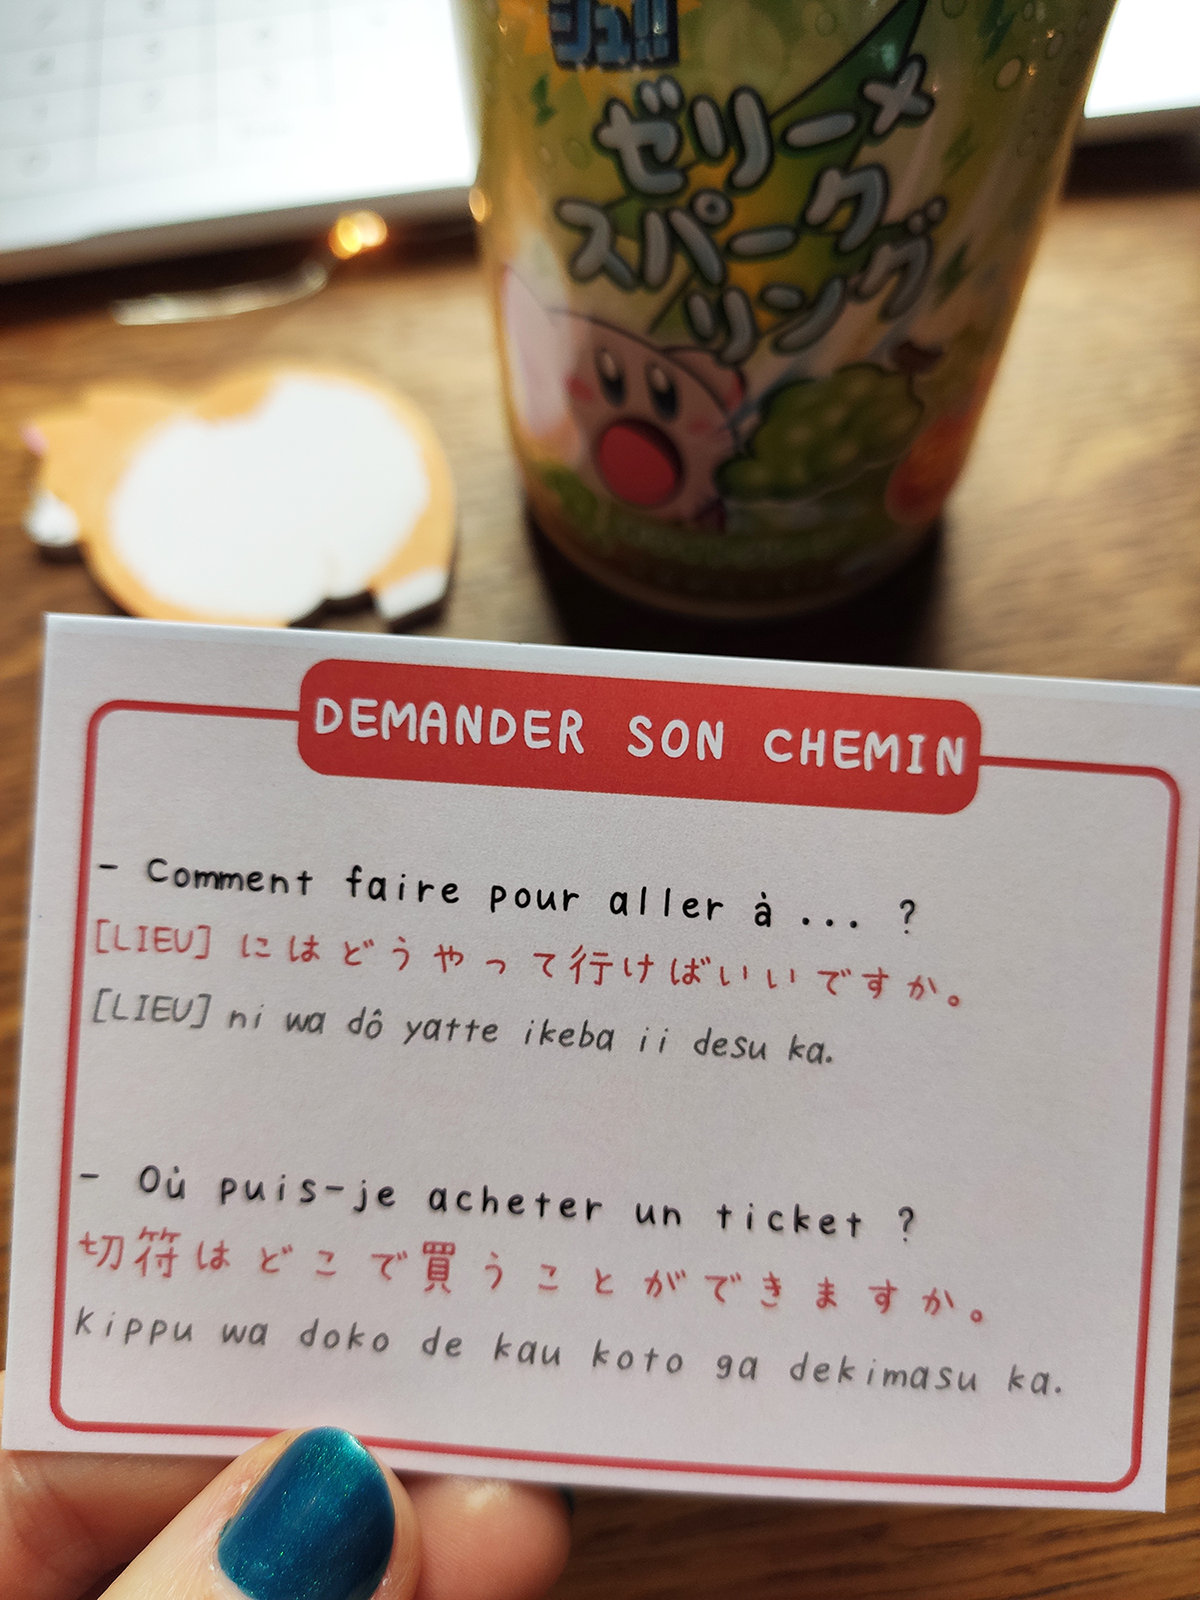 シュ!!
ゼリー×
スパーク
リング
DEMANDER SON CHEMIN
- Comment faire pour aller à ... ?
[LIEU] にはどうやって行けばいいですか。
[LIEU] ni wa dô yatte ikeba ii desu ka.
- Où puis-je acheter un ticket ?
切符はどこで買うことができますか。
kippu wa doko de kau koto ga dekimasu ka.